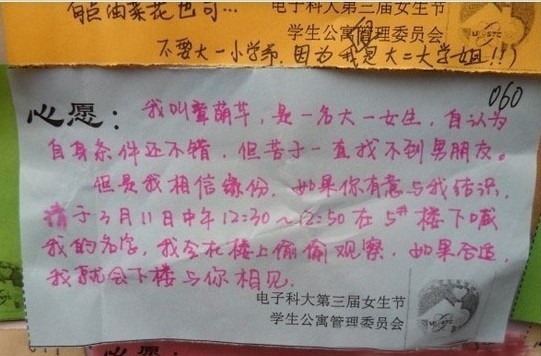 电子科大第三届女生节
学生公寓管理委员会
不要大一小学弟,因为我是大二大学姐!!)
060
心愿:我叫章萌芊,是一名大一女生,自认为
自身条件还不错,但苦于一直找不到男朋友。
但是我相信缘份,如果你有意与我结识,
请于3月11日中午12:30～12:50在5#楼下喊
我的名字,我会在楼上偷偷观察,如果合适,
我就会下楼与你相见.
电子科大第三届女生节
学生公寓管理委员会
心愿: